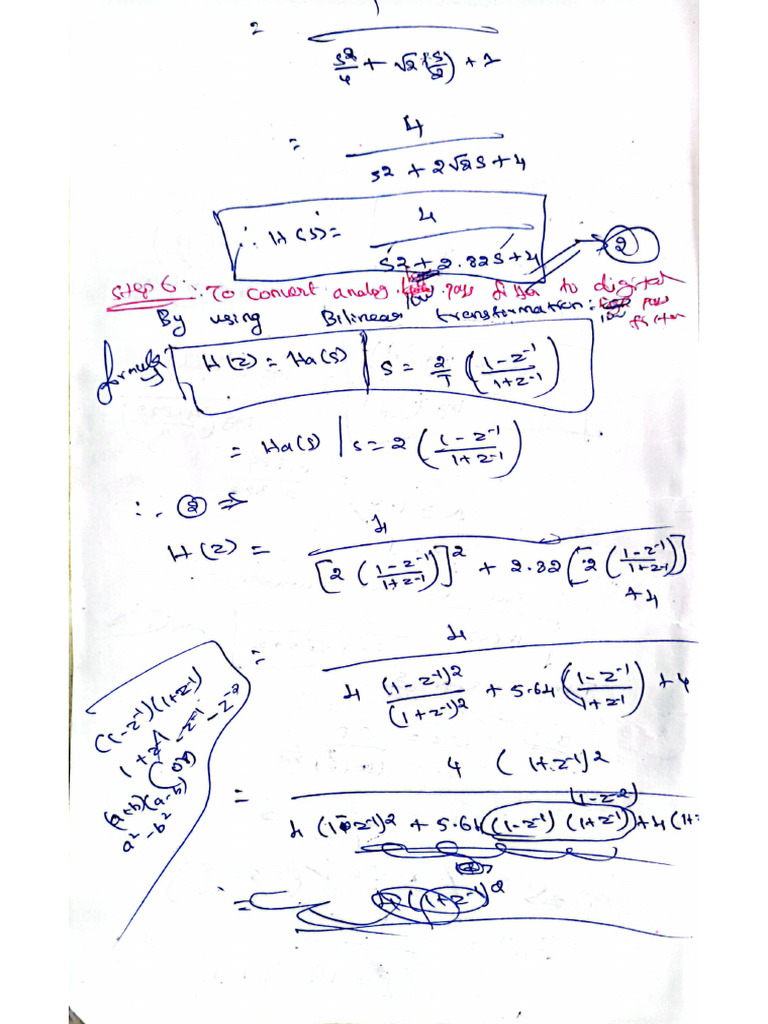 = 1 / (s²/4 + √2 (s/2) + 1)
= 4 / (s² + 2√2 s + 4)
∴ H(s) = 4 / (s² + 2.82s + 4) → ②
Step 6 : To convert analog low pass filter to digital low pass filter
By using Bilinear transformation.
formula H(z) = Ha(s) | s = 2/T ((1-z⁻¹)/(1+z⁻¹))
= Ha(s) | s = 2 ((1-z⁻¹)/(1+z⁻¹))
∴ ② ⇒
H(z) = 4 / ([2((1-z⁻¹)/(1+z⁻¹))]² + 2.82[2((1-z⁻¹)/(1+z⁻¹))] + 4)
= 4 / (4 (1-z⁻¹)²/(1+z⁻¹)² + 5.64((1-z⁻¹)/(1+z⁻¹)) + 4
(1-z⁻¹)(1+z⁻¹)
1+z⁻¹-z⁻¹-z⁻²
(or)
(a+b)(a-b)
a²-b²
= 4 (1+z⁻¹)² / 4(1-z⁻¹)² + 5.64(1-z⁻¹)(1+z⁻¹) + 4(1+
(1-z⁻²)
= 4(1+z⁻¹)²